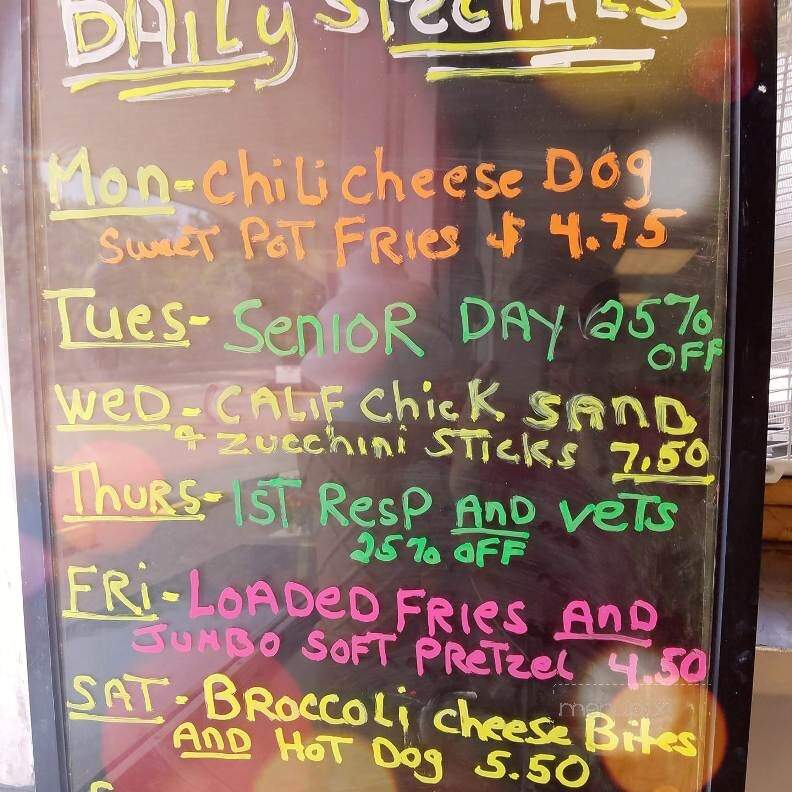 DAily SPeCiALS
Mon-Chili cheese Dog
Sweet PoT FRies $ 4.75
Tues- SenioR DAy 25%
OFF
WeD- CALiF ChicK SAnD
& Zucchini STicks 7.50
THuRS- 1ST ResP AnD veTs
25% OFF
FRi- LoADeD FRies AnD
JUMBO SOFT PReTzeL 4.50
SAT- BRoccoLi cheese Bites
AnD HoT Dog 5.50